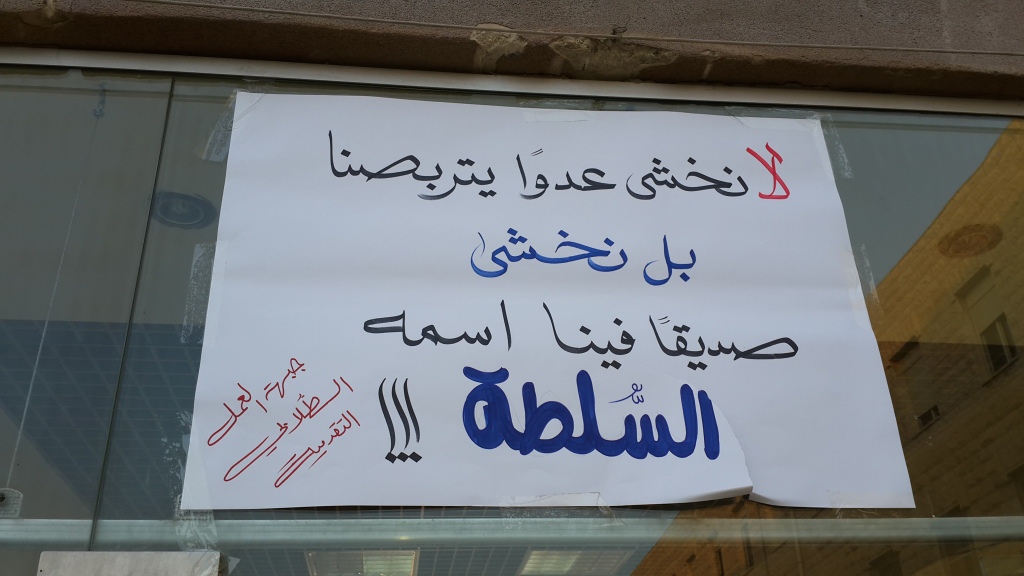 لا نخشى عدوًا يتربصنا
بل نخشى
صديقًا فينا اسمه
السّلطة !!!
جبهة العمل
الطّلابي
التقدمية